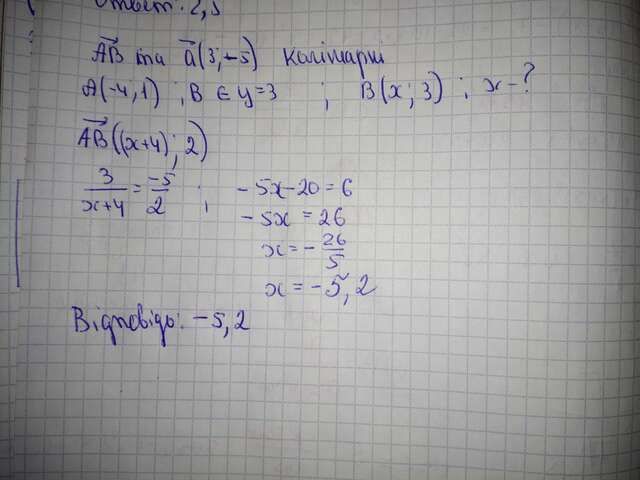 Ответ: 2,5
AB та a(3;-5) колінеарні
A(-4;1) ; B ∈ y=3 ; B(x; 3) ; x-?
AB((x+4); 2)
3/(x+4) = -5/2 ; -5x-20=6
-5x = 26
x = -26/5
x = -5,2
Відповідь: -5,2